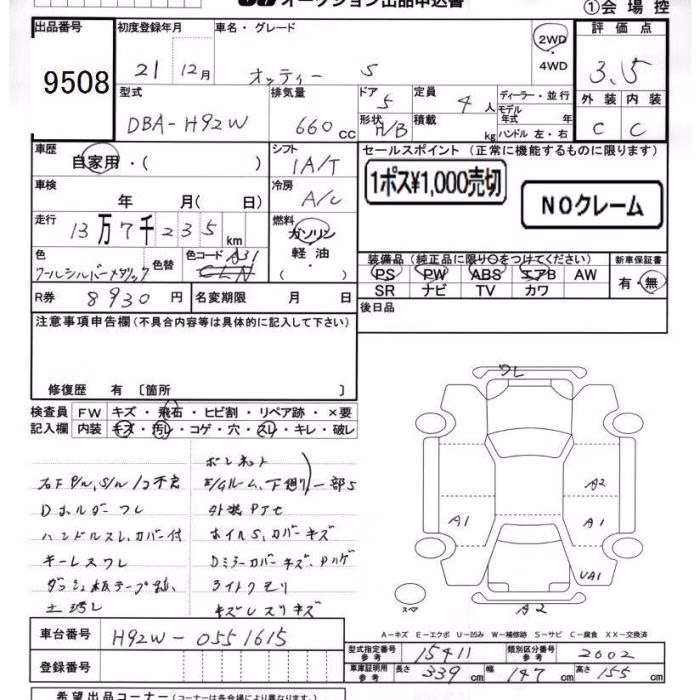 オークション出品申込書
①会場控
出品番号 初度登録年月 車名・グレード 2WD 評価点
9508 21 12月 オッティー S ・4WD 3.5
型式 排気量 ドア 定員 ディーラー・並行 外装 内装
DBA-H92W 660cc 5 4人 モデル年式 年 C C
形状 H/B 積載 kg ハンドル 左・右
車歴 シフト セールスポイント (正常に機能するものに限ります)
自家用・( ) IA/T 1ポス¥1,000売切
車検 冷房
年 月( 日) A/C NOクレーム
走行 燃料
13万7千235km ガソリン
色 色替 色コード A31 軽油・
クールシルバーメタリック CLN ( )
装備品 (純正品に限り○をつけてください) 新車保証書
PS PW ABS エアB AW 有・無
SR ナビ TV カワ
R券 8930円 名変期限 月 日 後日品
注意事項申告欄 (不具合内容等は具体的に記入して下さい)
修復歴 有 〔箇所 〕
検査員 FW キズ・飛石・ヒビ割・リペア跡・×要
記入欄 内装 キズ・汚レ・コゲ・穴・スレ・キレ・破レ
ボンネット
Dホルダーワレ
ハンドルスレ,カバー付
ホイルS,カバーキズ
キーレスワレ
ライトクモリ
ワレ
A2
A1
A1
UA1
スマ
A2
A-キズ E-エクボ U-凹み W-補修跡 S-サビ C-腐食 XX-交換済
車台番号 H92W-0551615
型式指定番号 参考 15411 類別区分番号 参考 2002
登録番号
車庫証明用 参考 長さ 339cm 幅 147cm 高さ 155cm
希望出品コーナー (コーナーは各会場により異なります)